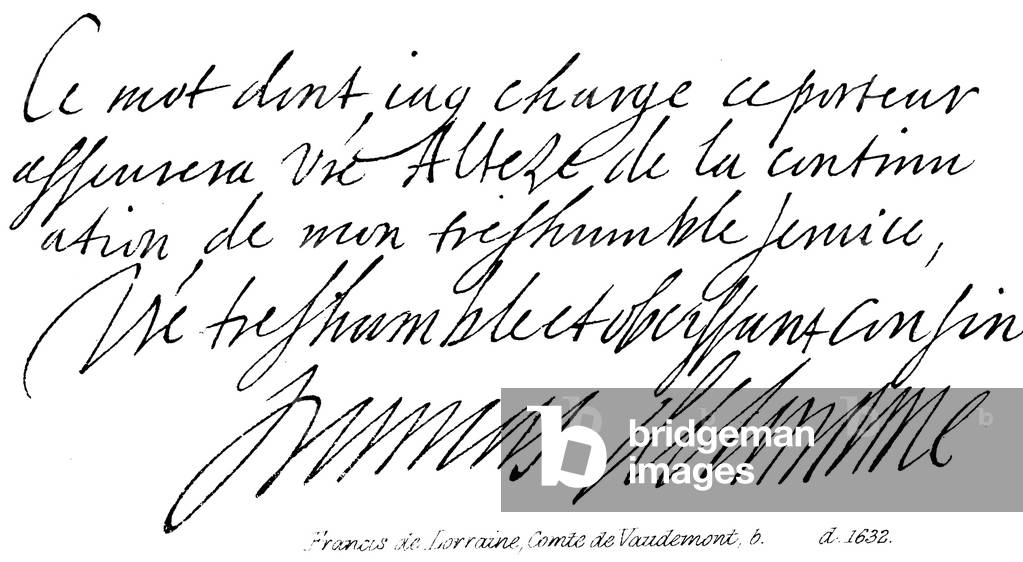 Ce mot dont iay charge ce porteur
asseurera Vre Alteze de la continu
ation de mon treshumble seruice,
Vre treshumble et obeissant Cousin
Francois de Lorraine
bridgeman
images
Francis de Lorraine, Comte de Vaudemont, b. d. 1632.